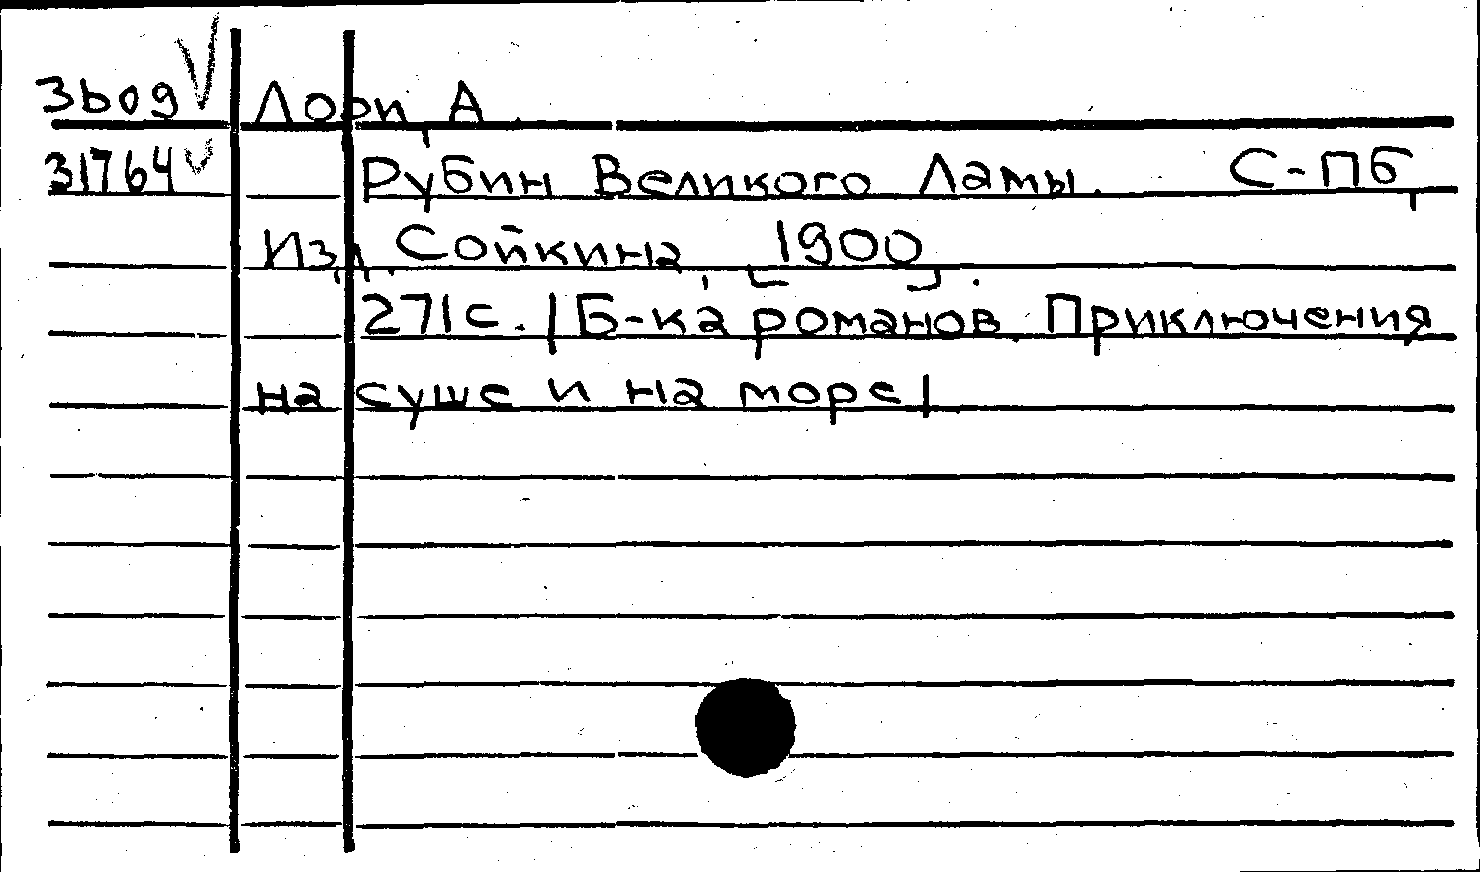 Зbод Лори, А.
31764 Рубин Великого Ламы. С-Пб,
Изд. Сойкина, [1900].
271с. |Б-ка романов. Приключения
на суше и на море|